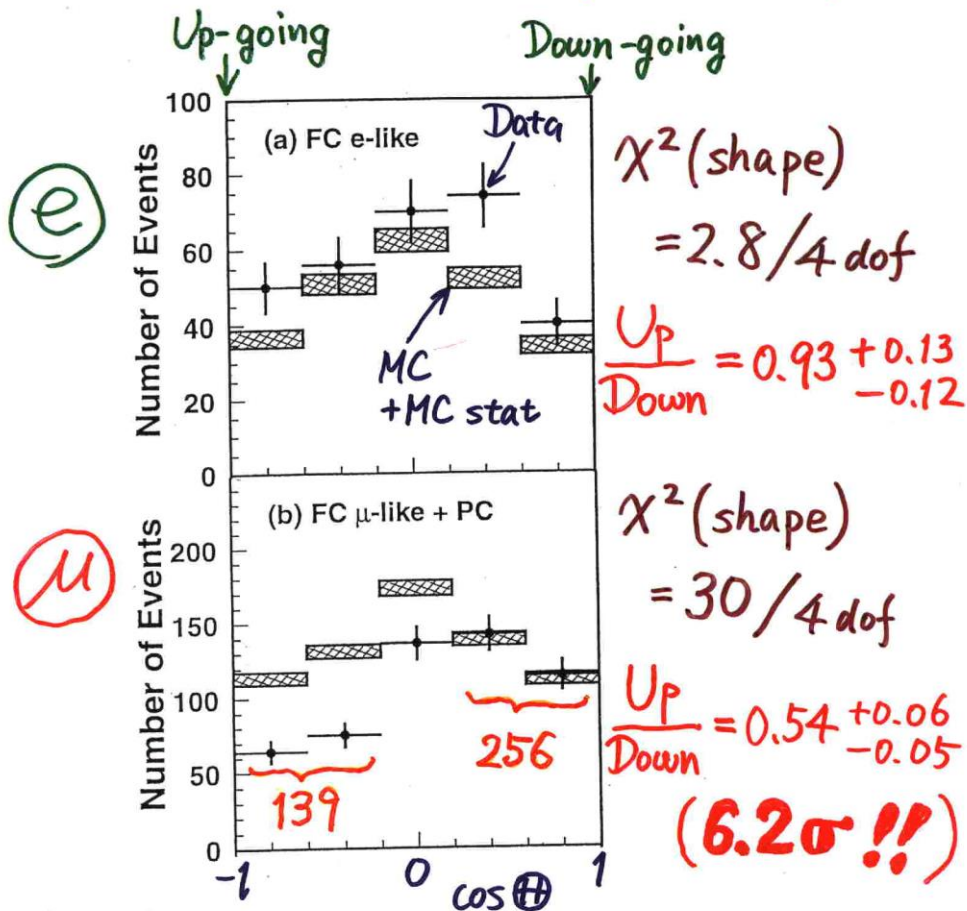 Up-going
Down-going
100
80
60
40
20
0
Number of Events
(a) FC e-like
Data
MC
+MC stat
e
χ² (shape)
= 2.8/4 dof
Up/Down = 0.93 +0.13 -0.12
200
150
100
50
0
Number of Events
(b) FC μ-like + PC
μ
139
256
χ² (shape)
= 30/4 dof
Up/Down = 0.54 +0.06 -0.05
(6.2σ!!)
-1 0 1
cos Θ